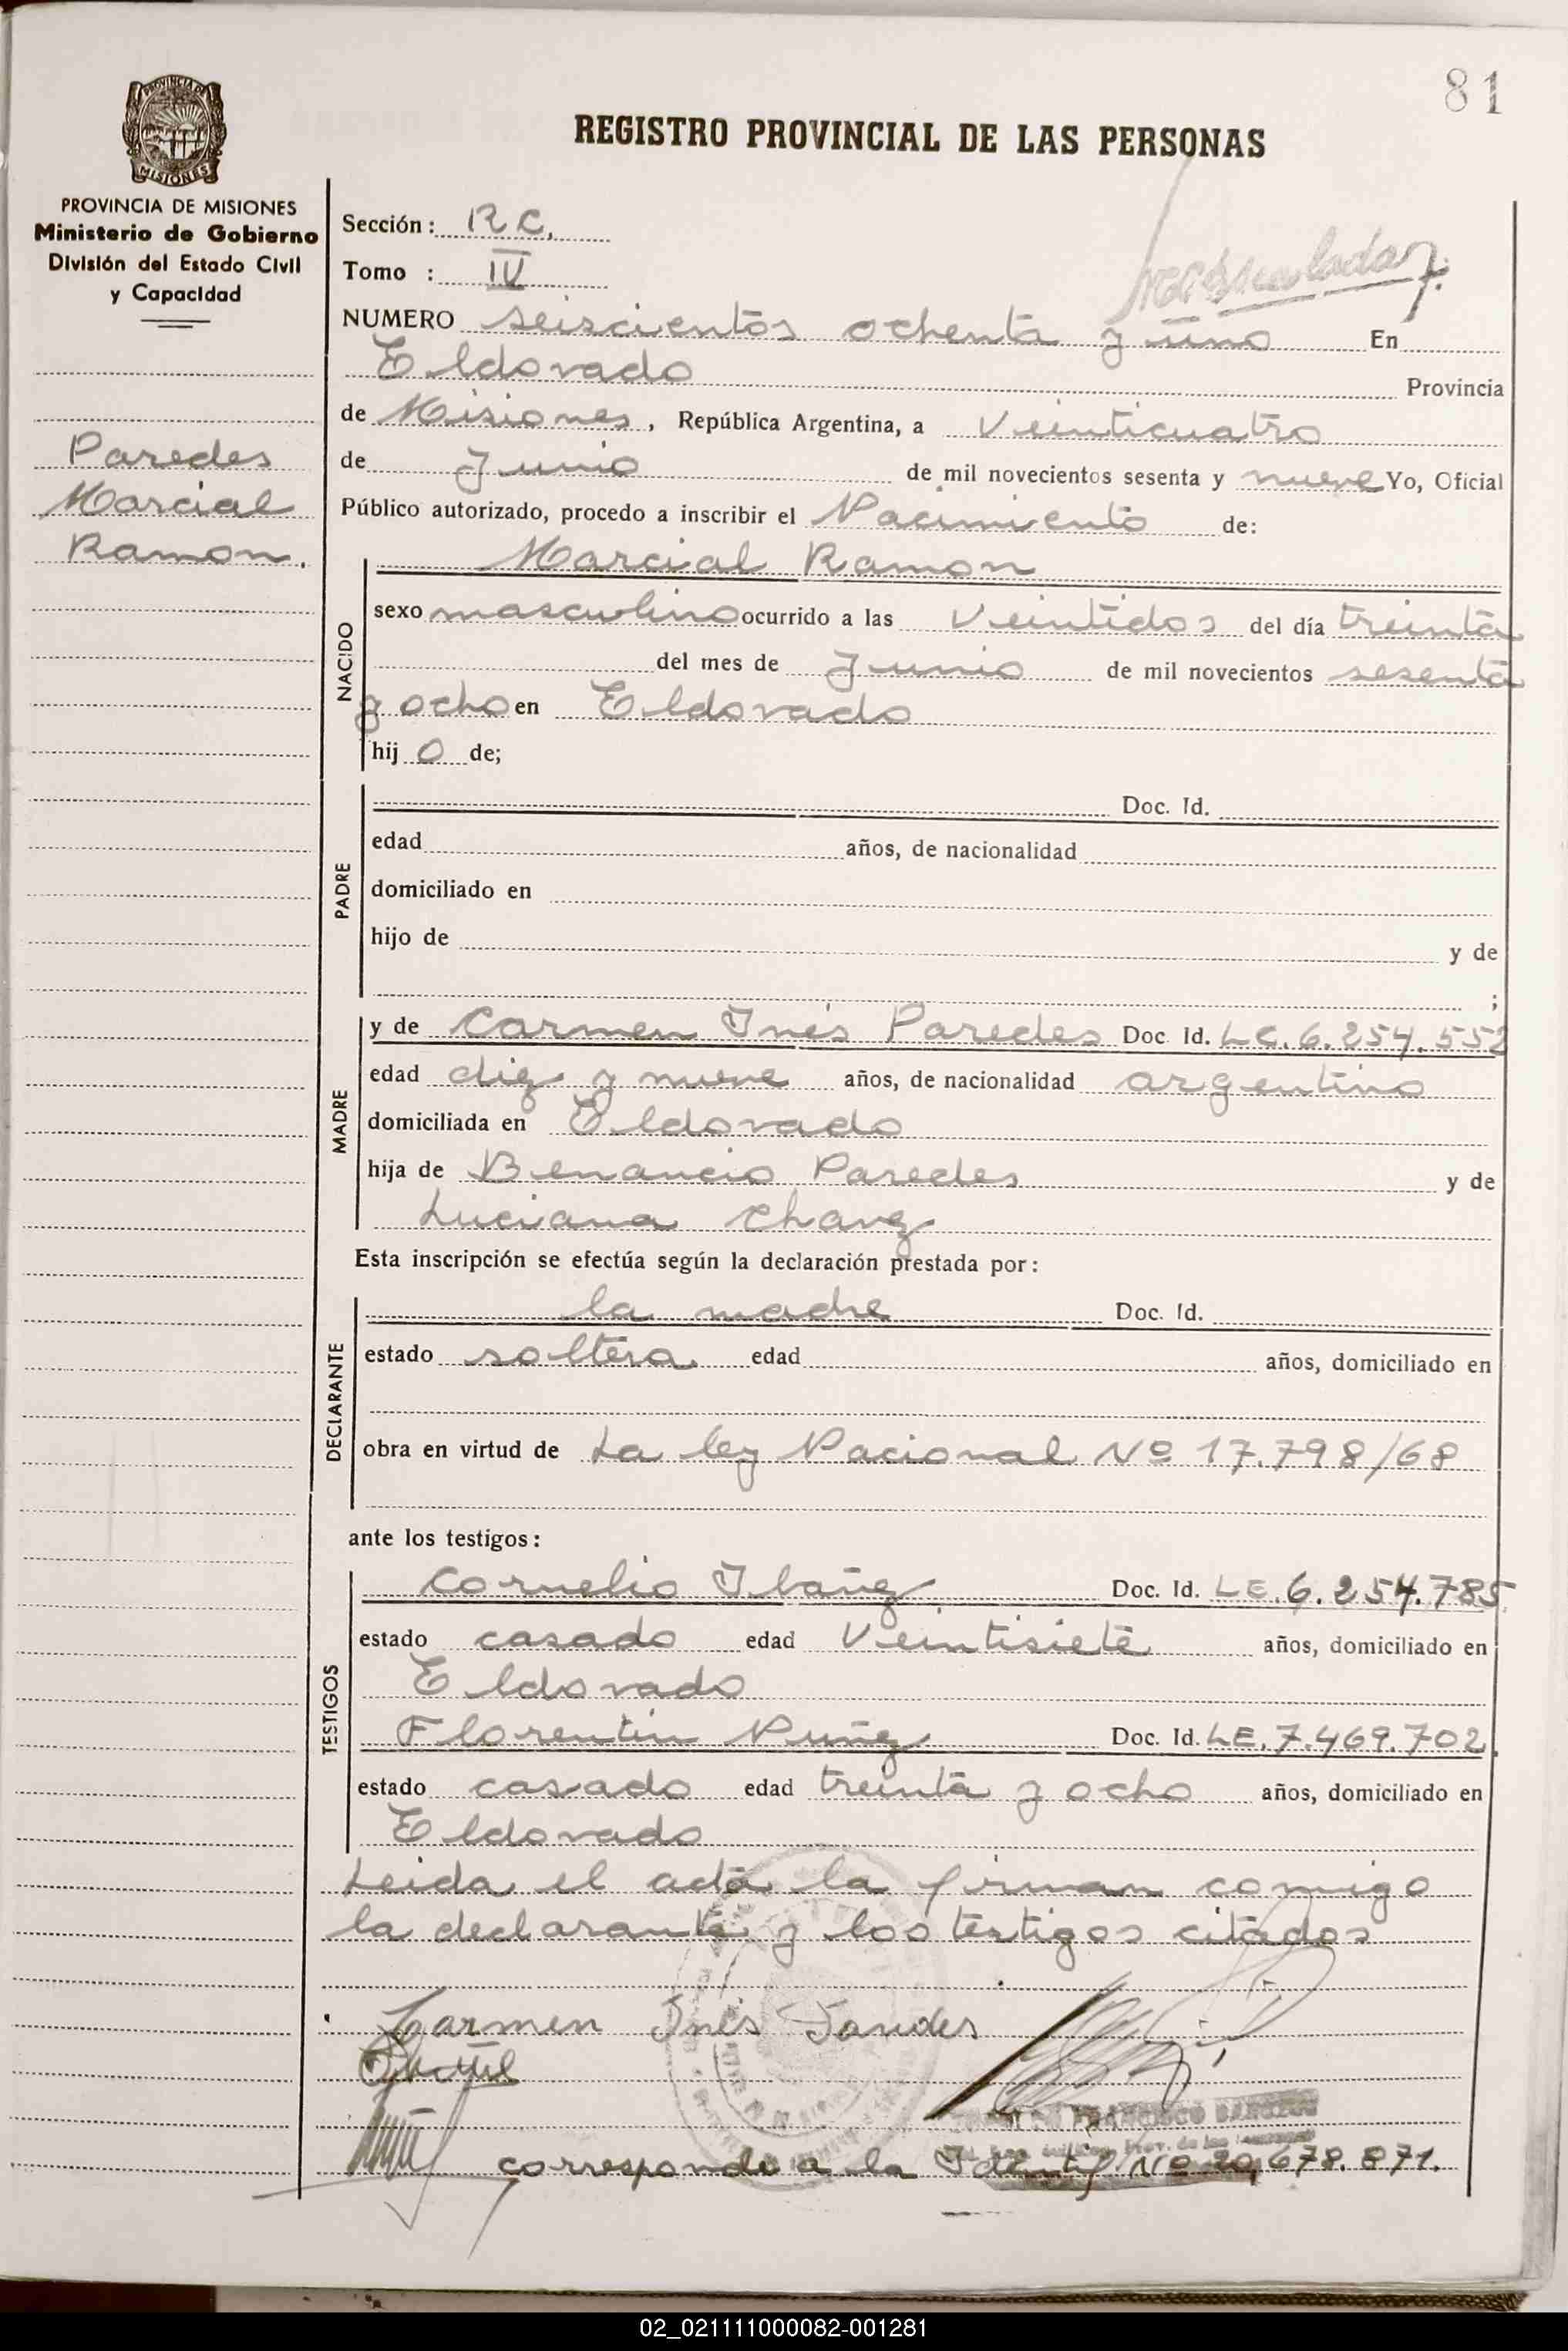 81
PROVINCIA DE
MISIONES
REGISTRO PROVINCIAL DE LAS PERSONAS
PROVINCIA DE MISIONES
Ministerio de Gobierno
División del Estado Civil
y Capacidad
Paredes
Marcial
Ramon.
Sección: R C,
Tomo : IV
NUMERO seiscientos ochenta y uno En
Eldorado Provincia
de Misiones, República Argentina, a Veinticuatro
de Junio de mil novecientos sesenta y nueve Yo, Oficial
Público autorizado, procedo a inscribir el Nacimiento de:
Marcial Ramon
NACIDO
sexo masculino ocurrido a las Veintidos del día treinta
del mes de Junio de mil novecientos sesenta
y ocho en Eldorado
hij o de;
PADRE
Doc. Id.
edad años, de nacionalidad
domiciliado en
hijo de y de
;
MADRE
y de Carmen Inés Paredes Doc Id. LC. 6.254.552
edad diez y nueve años, de nacionalidad argentino
domiciliada en Eldorado
hija de Benancio Paredes y de
Luciana Chavez
Esta inscripción se efectúa según la declaración prestada por:
DECLARANTE
la madre Doc. Id.
estado soltera edad años, domiciliado en
obra en virtud de La ley Nacional Nº 17.798/68
ante los testigos:
TESTIGOS
Cornelio Ibañez Doc. Id. LE. 6.254.785
estado casado edad Veintisiete años, domiciliado en
Eldorado
Florentin Nuñez Doc. Id. LE. 7.469.702
estado casado edad treinta y ocho años, domiciliado en
Eldorado
Leida el acta la firman comigo
la declarante y los testigos citados
Carmen Inés Paredes
FRANCISCO
corresponde a la Identif Nº 20,678.871.
02_021111000082-001281